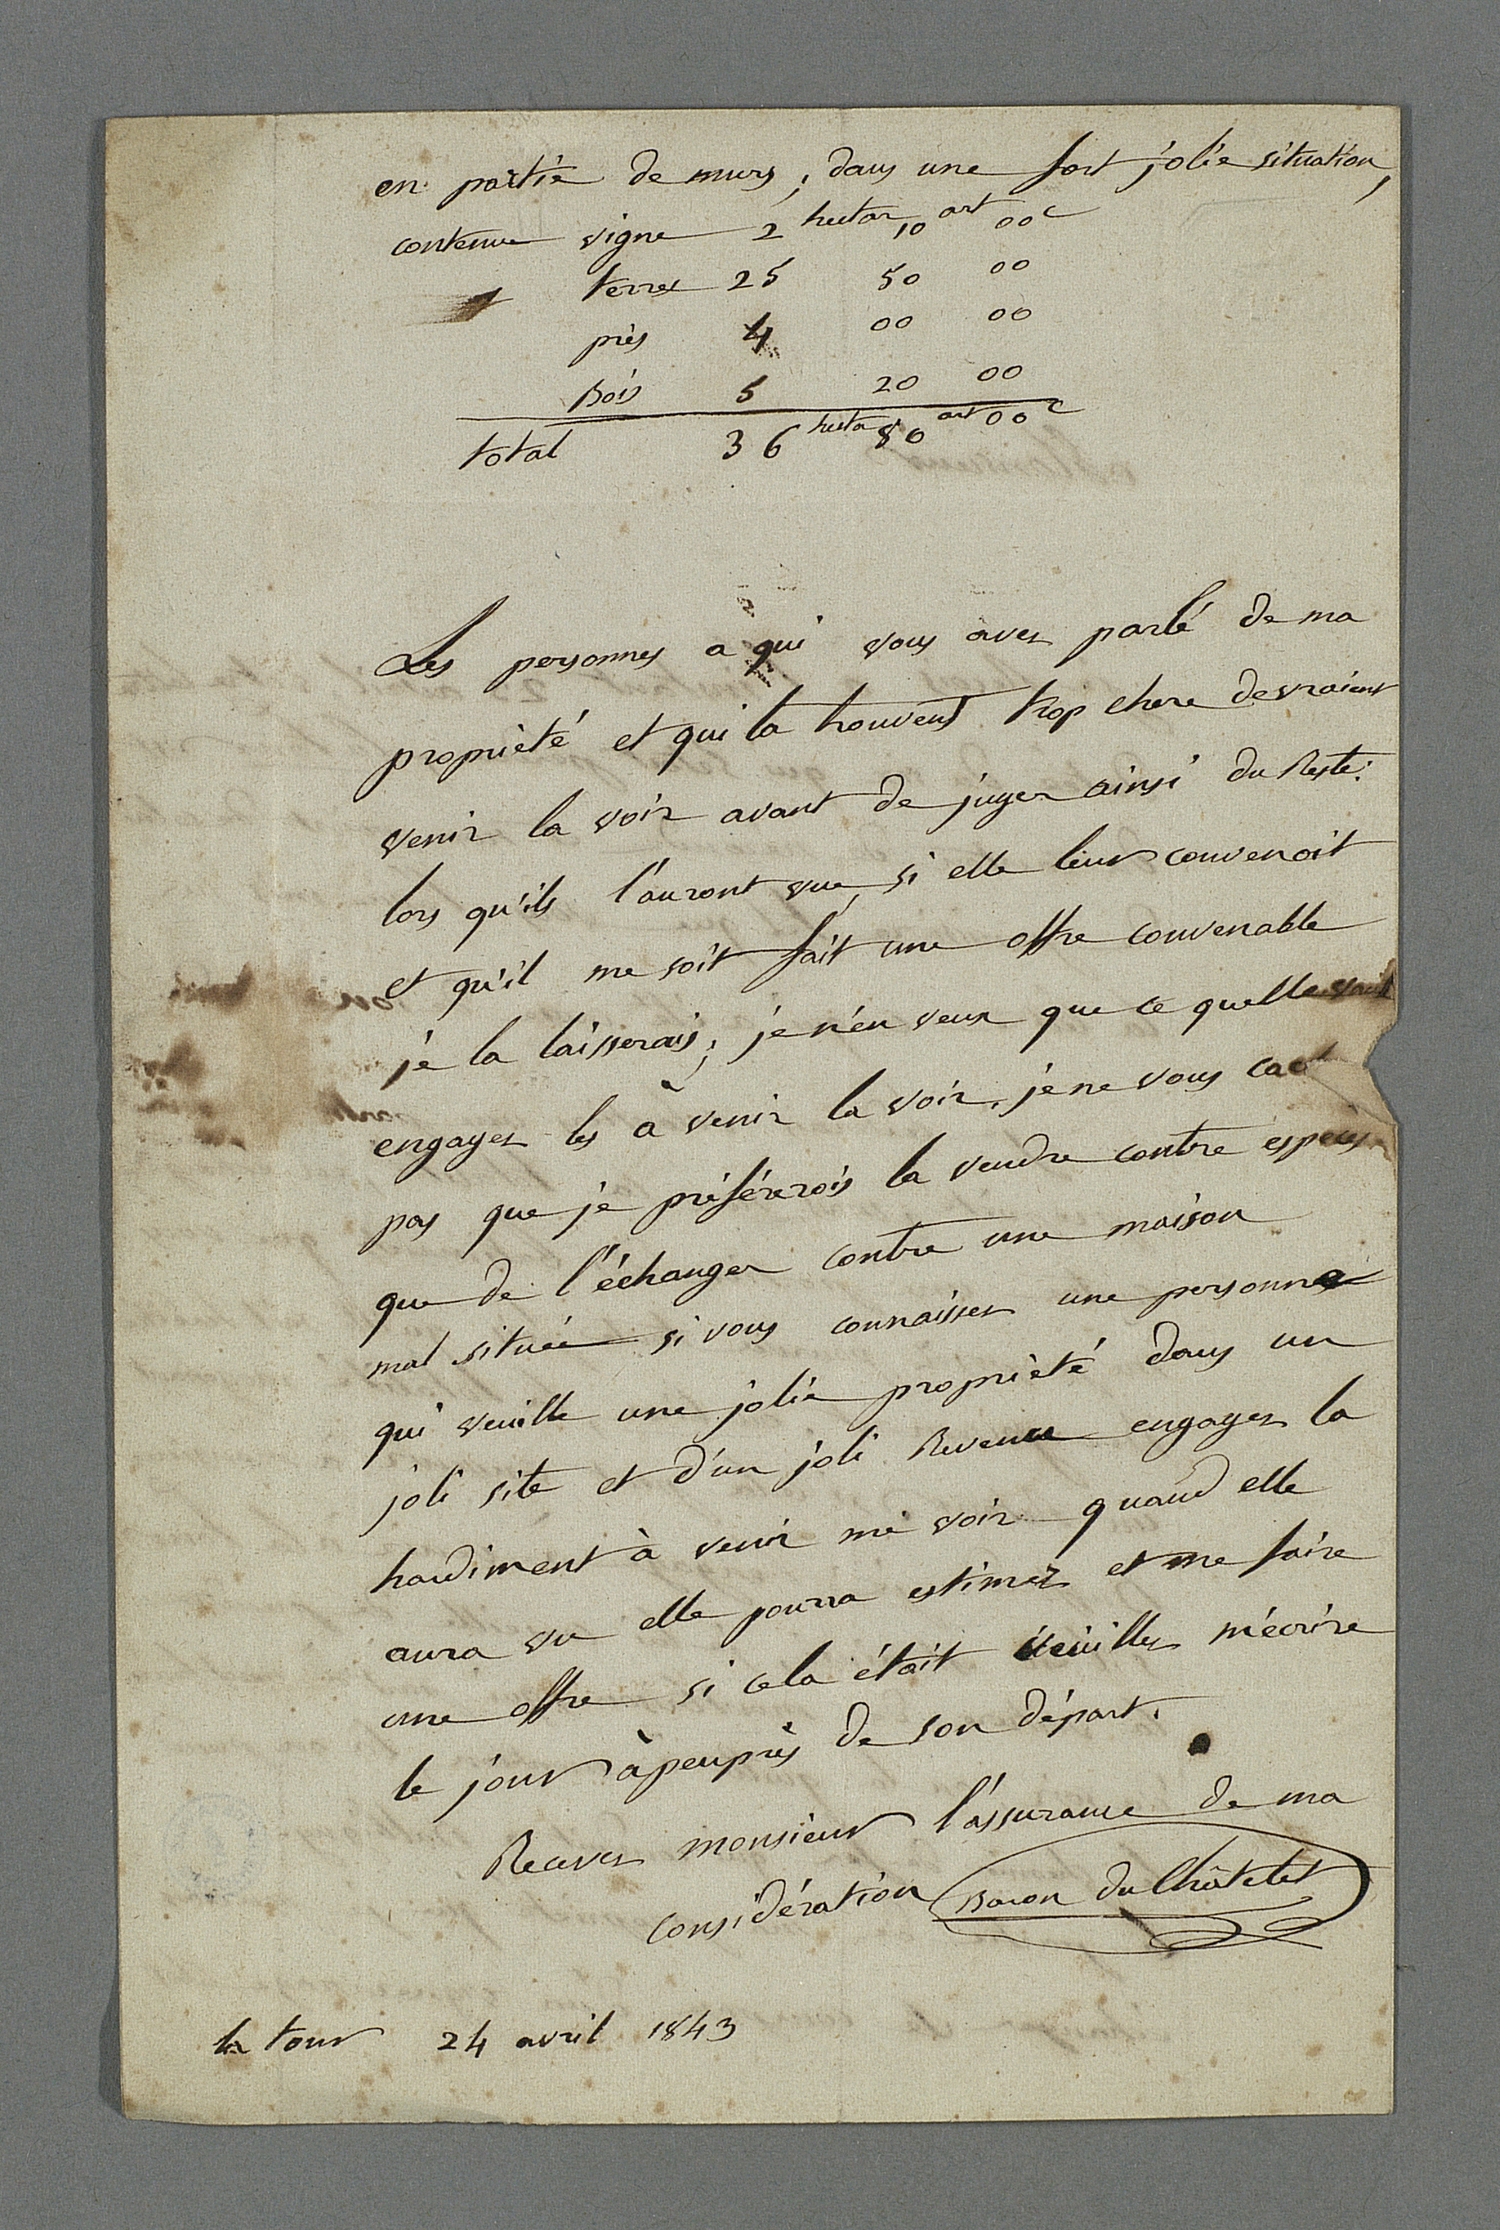 en partie de murs, dans une fort jolie situation,
contenue vigne 2 hectar 10 art 00 c
terres 25 50 00
près 4 00 00
Bois 5 20 00
total 36 hecta 80 art 00 c
Les personnes a qui vous avez parlé de ma
propriété et qui la trouvent trop chere devraient
venir la voir avant de juger ainsi du Reste.
lors qu'ils l'auront vue, si elle leur convenoit
et qu'il me soit fait une offre convenable
je la laisserais; je n'en veux que ce quelle vaut
engagez les à venir la voir, je ne vous cach
pas que je préférerois la vendre contre espèces
que de l'échanger contre une maison
mal située si vous connaissez une personne
qui veuille une jolie propriété dans un
joli site et d'un joli Revenu engagez la
hardiment à venir me voir quand elle
aura vu elle pourra estimez et me faire
une offre si cela était veuillez m'écrire
le jour àpeuprès de son départ.
Recevez monsieur l'assurance de ma
considération Baron du Châtelet
la tour 24 avril 1843